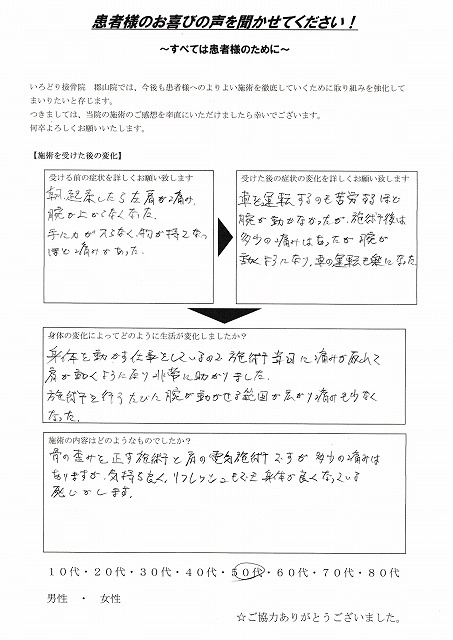 患者様のお喜びの声を聞かせてください！
～すべては患者様のために～
いろどり接骨院　郡山院では、今後も患者様へのよりよい施術を徹底していくために取り組みを強化して
まいりたいと存じます。
つきましては、当院の施術のご感想を率直にいただけましたら幸いでございます。
何卒よろしくお願いいたします。
【施術を受けた後の変化】
受ける前の症状を詳しくお願い致します
朝、起床したら左肩が痛み、
腕が上がらなくなった。
手に力が入らなく、物が持てなっ
ほど痛みがあった。
受けた後の症状の変化を詳しくお願い致します
車を運転するのも苦労するほど
腕が動かなかったが、施術後は
多少の痛みはなったが腕が
動くようになり、車の運転も楽になった
身体の変化によってどのように生活が変化しましたか？
身体を動かす仕事をしているので施術当日に痛みが取れて
肩が動くようになり非常に助かりました。
施術を行うたびに腕が動かせる範囲が広がり痛みも少なく
なった。
施術の内容はどのようなものでしたか？
骨の歪みを正す施術と肩の電気施術ですが多少の痛みは
ありますが、気持ち良く、リフレッシュもでき身体が良くなっている
感じがします。
１０代・２０代・３０代・４０代・５０代・６０代・７０代・８０代
男性　・　女性
☆ご協力ありがとうございました。